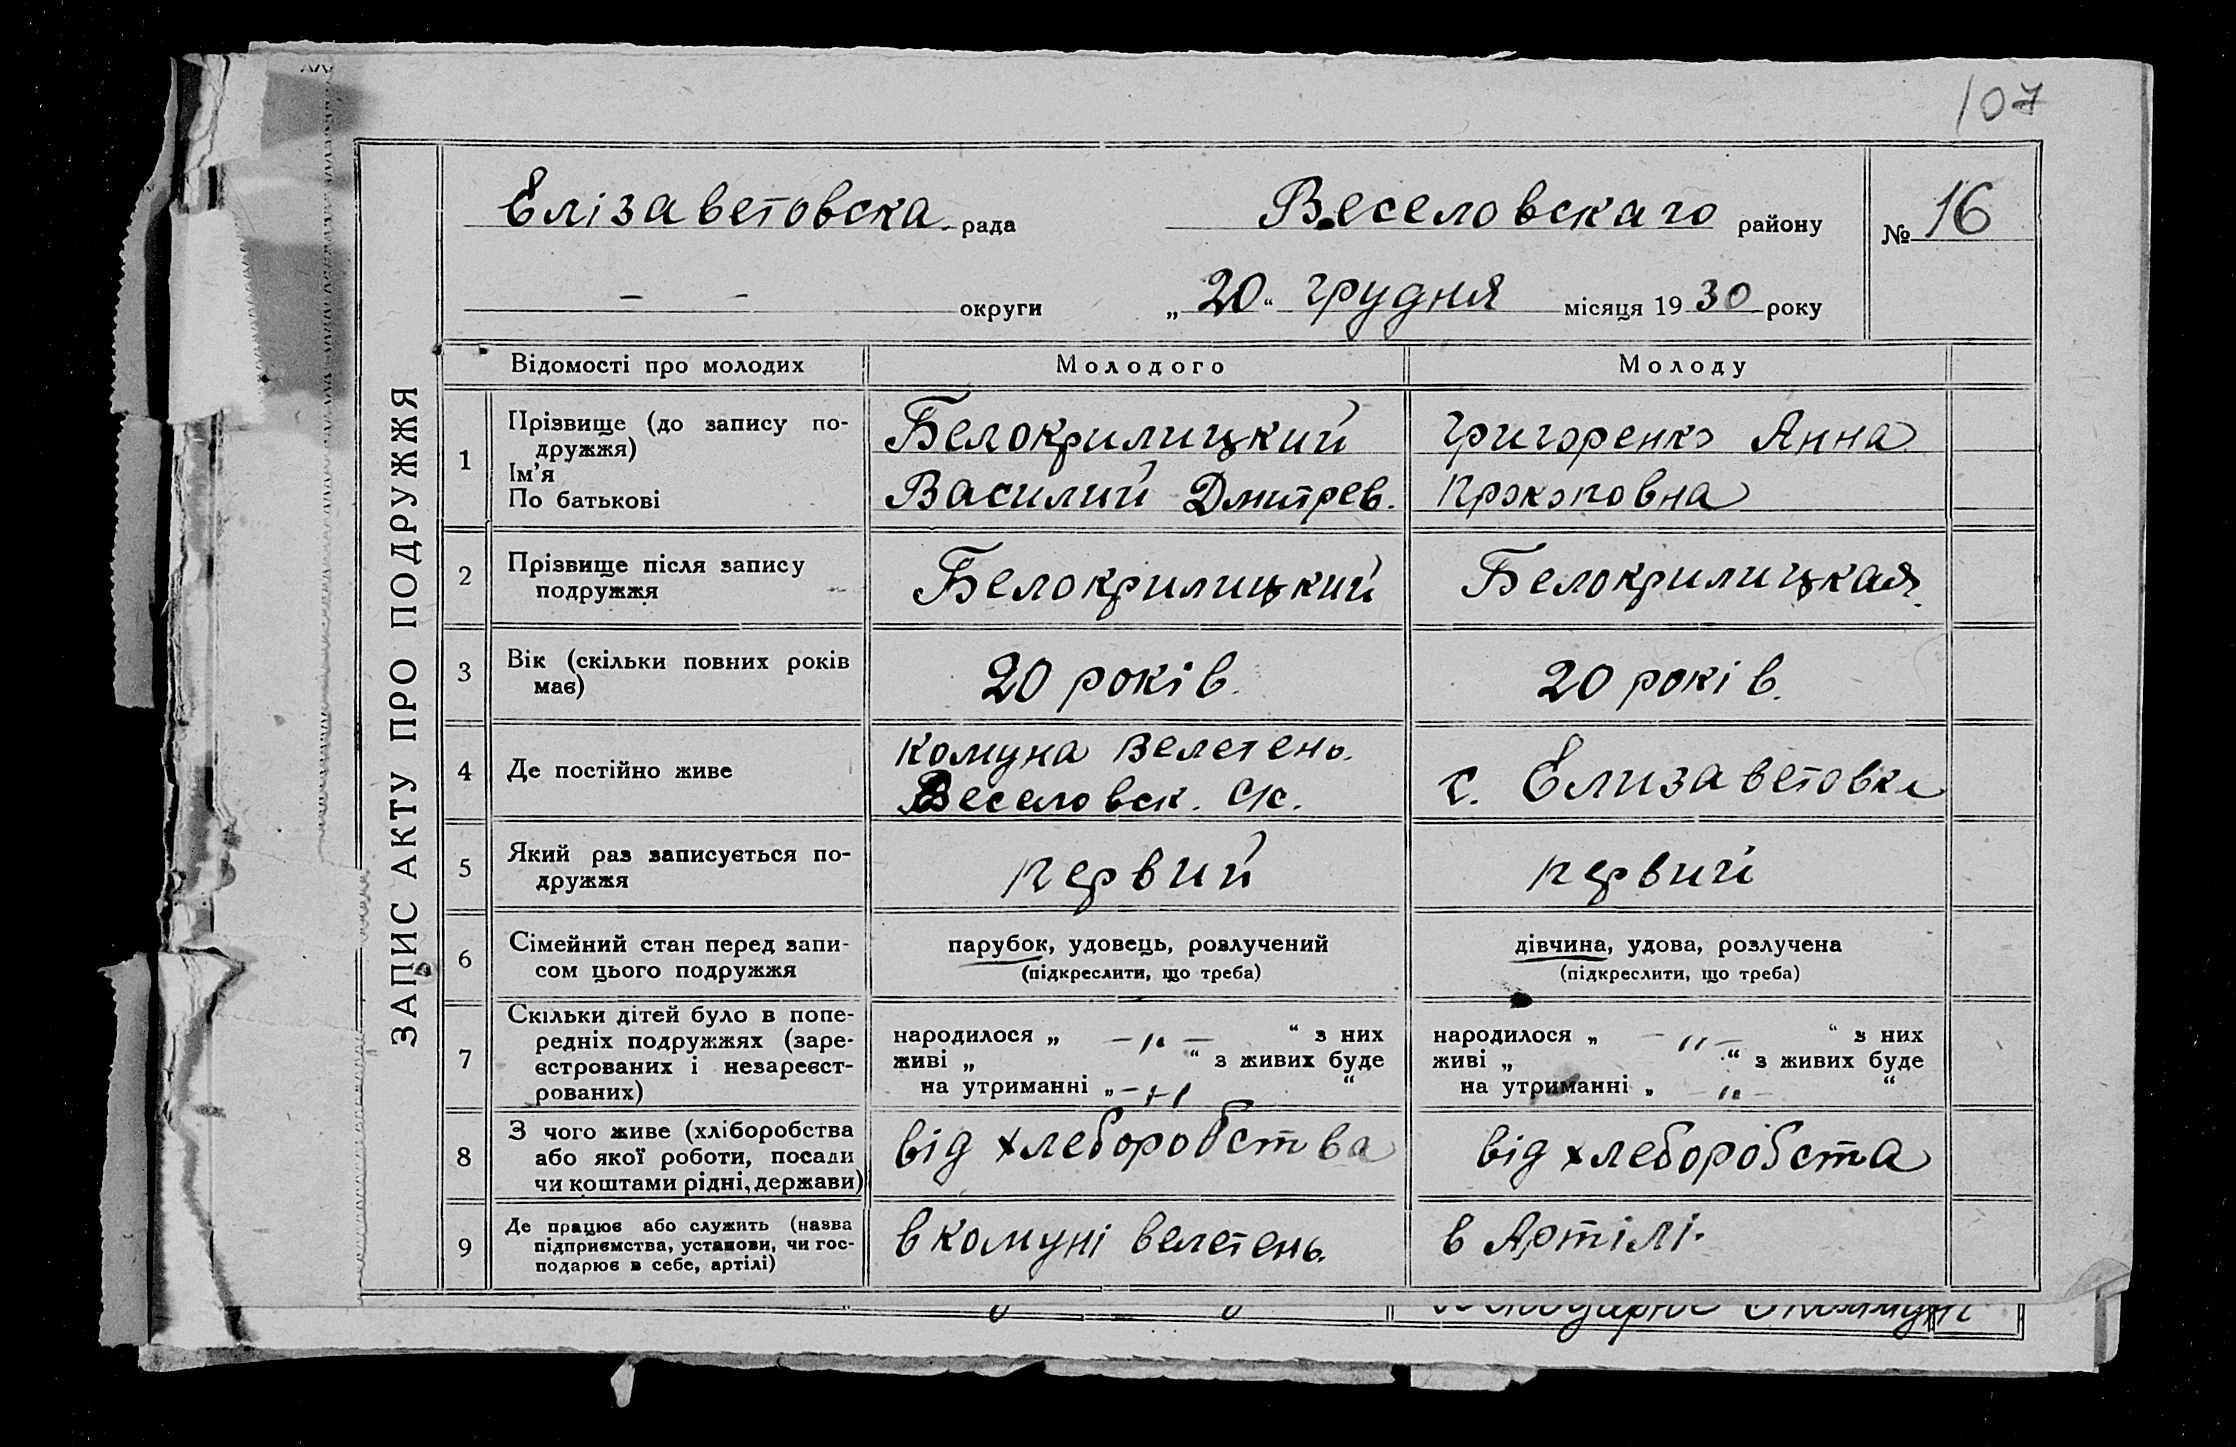 107
Елізаветовска рада Веселовскаго району № 16
— — округи „20“ грудня місяця 1930 року
ЗАПИС АКТУ ПРО ПОДРУЖЖЯ
Відомості про молодих Молодого Молоду
1 Прізвище (до запису по-
дружжя)
Ім’я
По батькові
Белокрилицкий
Василий Дмитрев.
Григоренко Анна
Прокоповна
2 Прізвище після запису
подружжя
Белокрилицкий
Белокрилицкая
3 Вік (скільки повних років
має)
20 років.
20 років.
4 Де постійно живе
Комуна Велетень.
Веселовск. с/с.
с. Елизаветовка
5 Який раз записується по-
дружжя
первий
первий
6 Сімейний стан перед запи-
сом цього подружжя
парубок, удовець, розлучений
(підкреслити, що треба)
дівчина, удова, розлучена
(підкреслити, що треба)
7 Скільки дітей було в попе-
редніх подружжях (заре-
єстрованих і незареєст-
рованих)
народилося „ —„— “ з них
живі „ “ з живих буде
на утриманні „ —„ “
народилося „ —„— “ з них
живі „ “ з живих буде
на утриманні „ —„— “
8 З чого живе (хліборобства
або якої роботи, посади
чи коштами рідні, держави)
від хлеборобства
від хлеборобста
9 Де працює або служить (назва
підприємства, установи, чи гос-
подарює в себе, артілі)
в комуні велетень.
в Артілі.